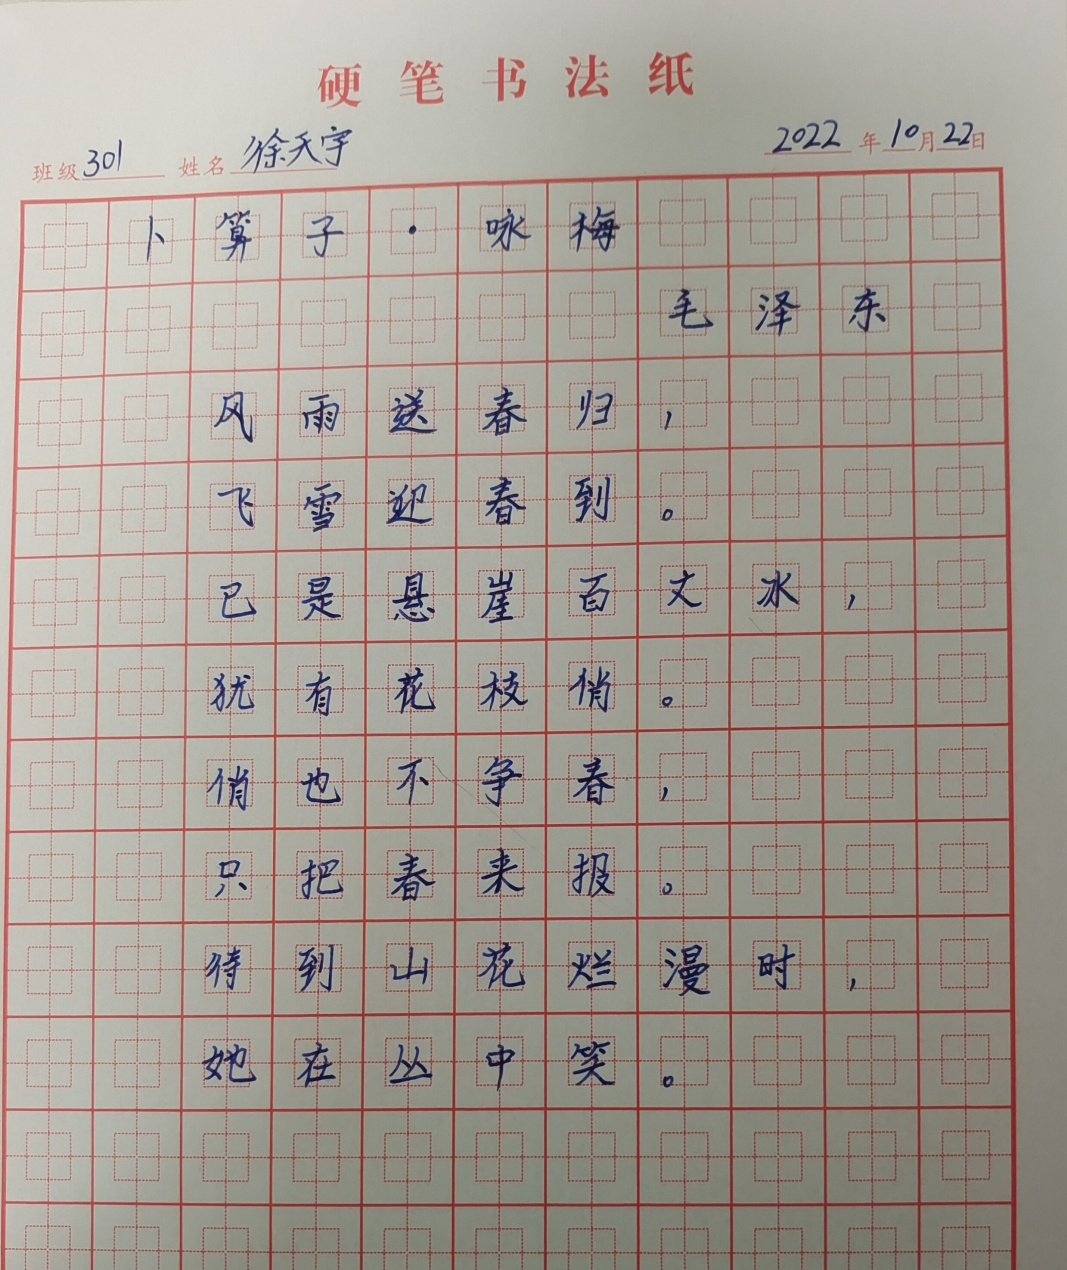 硬笔书法纸
班级 301 姓名 徐天宇 2022年10月22日
卜算子·咏梅
毛泽东
风雨送春归，
飞雪迎春到。
已是悬崖百丈冰，
犹有花枝俏。
俏也不争春，
只把春来报。
待到山花烂漫时，
她在丛中笑。